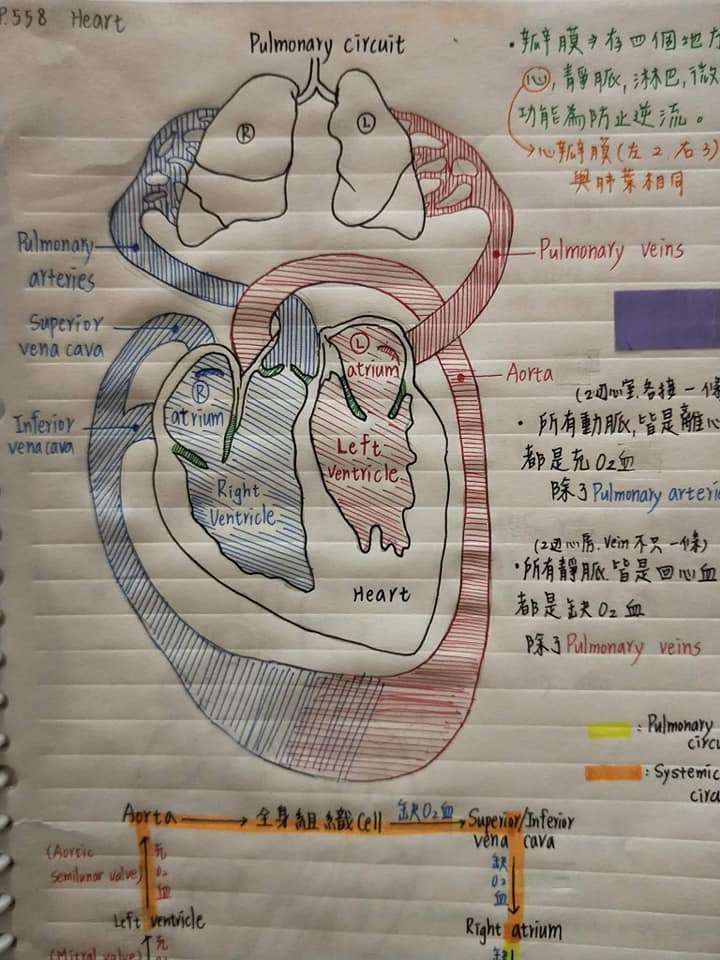 P.558 Heart
Pulmonary circuit
R
L
・瓣膜→存四個地
心,靜脈,淋巴,微
功能為防止逆流。
→心瓣膜(左2,右3)
與肺葉相同
Pulmonary
arteries
Pulmonary veins
Superior
vena cava
Inferior
vena cava
Aorta
R
atrium
L
atrium
Right
Ventricle
Left
ventricle
Heart
(2邊心室,各接一條
・所有動脈,皆是離心
都是充O₂血
除了Pulmonary arterie
(2邊心房,vein不只一條)
・所有靜脈,皆是回心血
都是缺O₂血
除了Pulmonary veins
: Pulmonary
circu
: Systemic
circu
Aorta → 全身組織cell 缺O₂血→ Superior/Inferior
vena cava
(Aortic
semilunar valve)
充
O₂
血
缺
O₂
血
Left ventricle
Right atrium
(Mitral valve)
充
O₂
缺